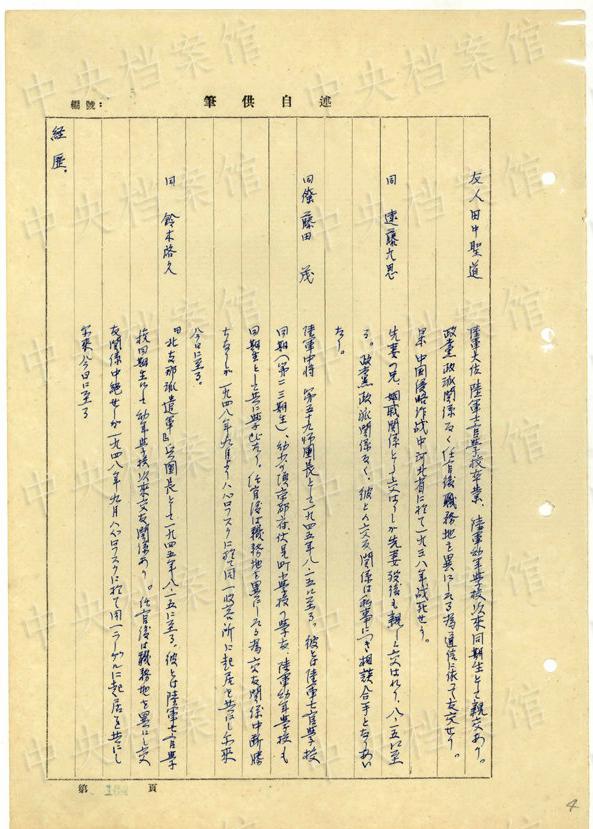 述自供筆
編號：
友人 田中聖道
陸軍大佐 陸軍士官学校卒業、陸軍幼年学校以来同期生として親交あり。
政党 政派関係なく 任官後職務地を異にしたる為通信に依って友交せり。
中国侵略作戦中河北省に於て一九三八年戦死せり。
同 遠藤九思
先妻の兄、姻戚関係として交はりしが先妻歿後も親しく交はれり、八・一五に至
る。政党政派関係なく、彼との交友関係は私事につき相談合手となりあい
たり。
同僚 藤田 茂
陸軍中将 第五十九師団長として一九四五年八・一五に至る。彼とは陸軍士官学校
同期（第二三期生）、幼少の頃京都府伏見町小学校の学友、陸軍幼年学校も
同期生として共に学びたり、任官後は職務地を異にしたる為交友関係中断
ちなりしが一九四八年九月よりハバロフスクに於て同一收容所に起居を共にし尓来
今日に至る。
同 鈴木啓久
旧北支那派遣軍 兵団長として一九四五年八・一五に至る。彼とは陸軍士官学
校同期生にして幼年学校以来交友関係あり。任官後は職務地を異にし交
友関係中絶せしが一九四八年九月ハバロフスクに於て同一ラーゲルに起居を共にし
尓来今日に至る
経歴、
第 頁
4
中央档案馆